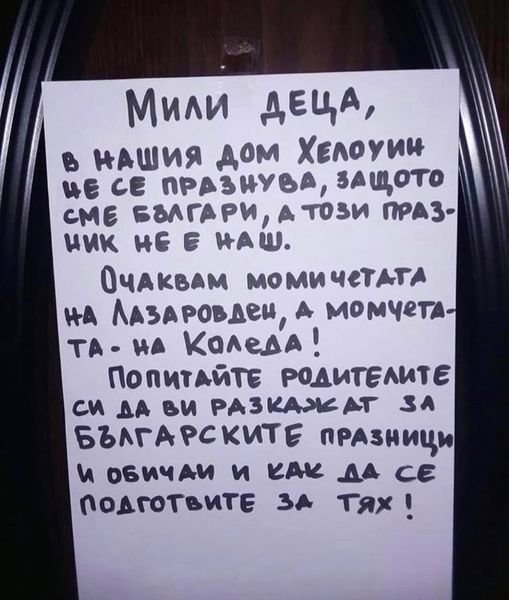 Мили деца,
в нашия дом Хелоуин
не се празнува, защото
сме българи, а този праз-
ник не е наш.
Очаквам момичетата
на Лазаровден, а момчета-
та - на Коледа!
Попитайте родителите
си да ви разкажат за
българските празници
и обичаи и как да се
подготвите за тях!